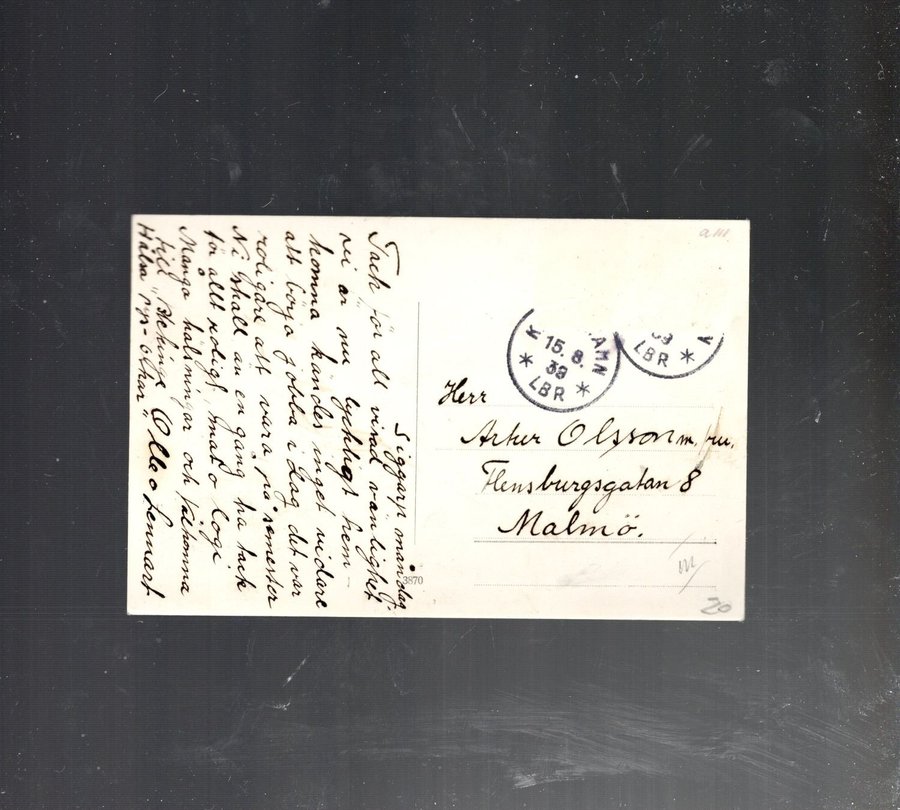 Siggarp måndag.
Tack för all visad vänlighet
vi är nu lyckligt hem-
komna kändes inget vidare
att börja jobba i dag det var
roligare att vara på semester
Ni skall än en gång ha tack
för allt roligt, mat o logi
Många hälsningar och välkomna
till Blekinge Olle o Lennart
Hälsa
a III
K AMN
15. 8.
39
LBR
39
LBR
Herr
Artur Olsson m. fru.
Flensburgsgatan 8
Malmö.
3870
20